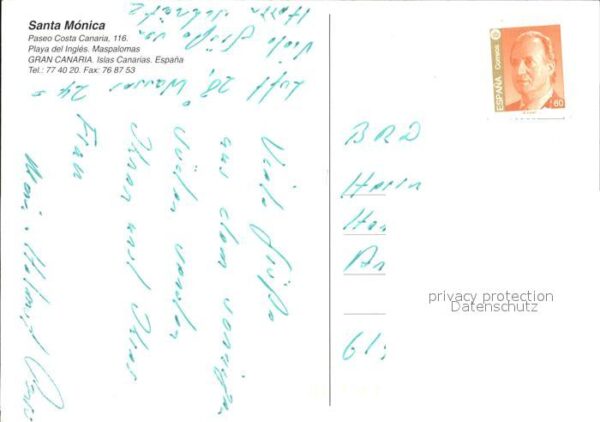 Santa Mónica
Paseo Costa Canaria, 116.
Playa del Inglés. Maspalomas
GRAN CANARIA. Islas Canarias. España
Tel.: 77 40 20. Fax: 76 87 53
Viele Grüße
aus dem sonnigen
Süden senden
Ihnen und Ihrer
Frau
Luft 28° Wasser 24°
Viele Grüße von
Herrn
ESPAÑA
Correos
60
BRD
Herrn
privacy protection
Datenschutz